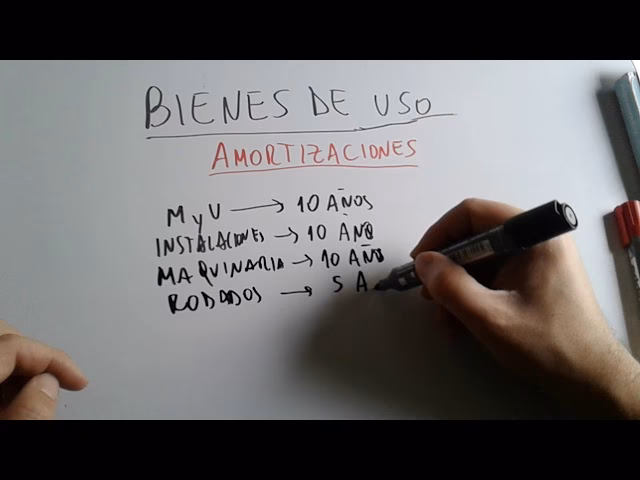 BIENES DE USO
AMORTIZACIONES
M y U → 10 AÑOS
INSTALACIONES → 10 AÑO
MAQUINARIA → 10 AÑOS
RODADOS → 5 A